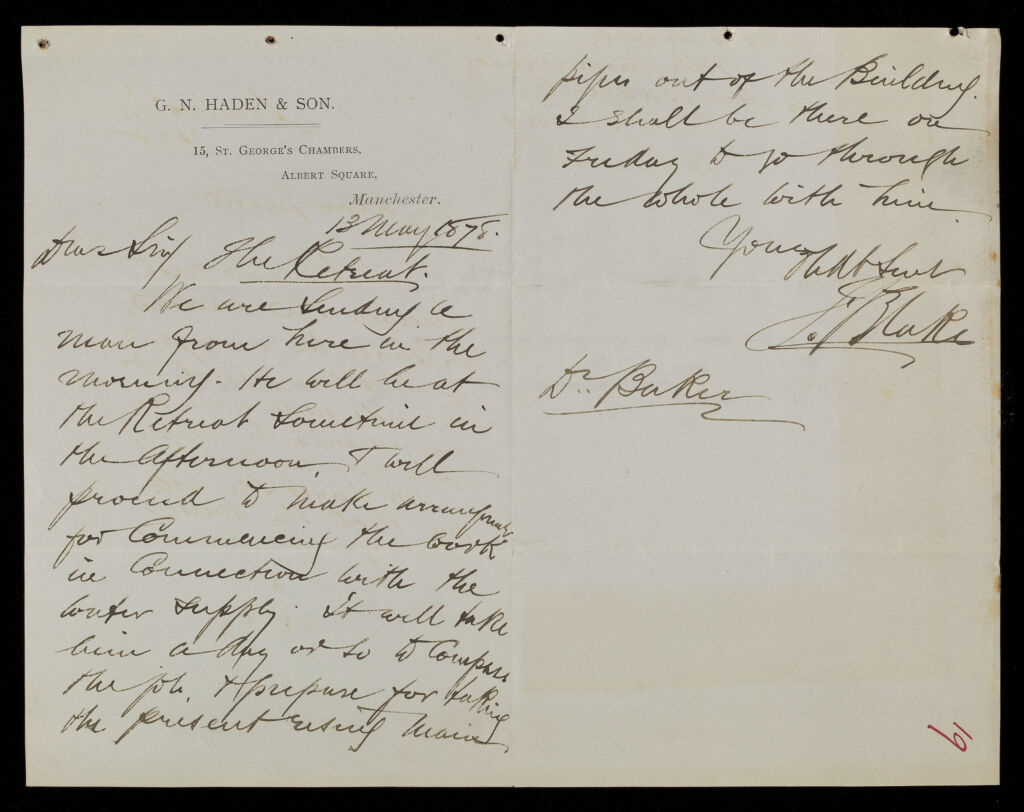 G. N. HADEN & SON.
15, ST. GEORGE'S CHAMBERS,
ALBERT SQUARE,
Manchester.
13 May 1878.
Dear Sir,
The Retreat.
We are sending a
man from here in the
morning. He will be at
the Retreat sometime in
the afternoon, & will
proceed to make arrangements
for Commencing the work
in Connection with the
water supply. It will take
him a day or so to Compare
the job, & prepare for taking
the present rising main
pipes out of the Building.
I shall be there on
Friday to go through
the whole with him.
Yours
Blake
Dr. Baker
19